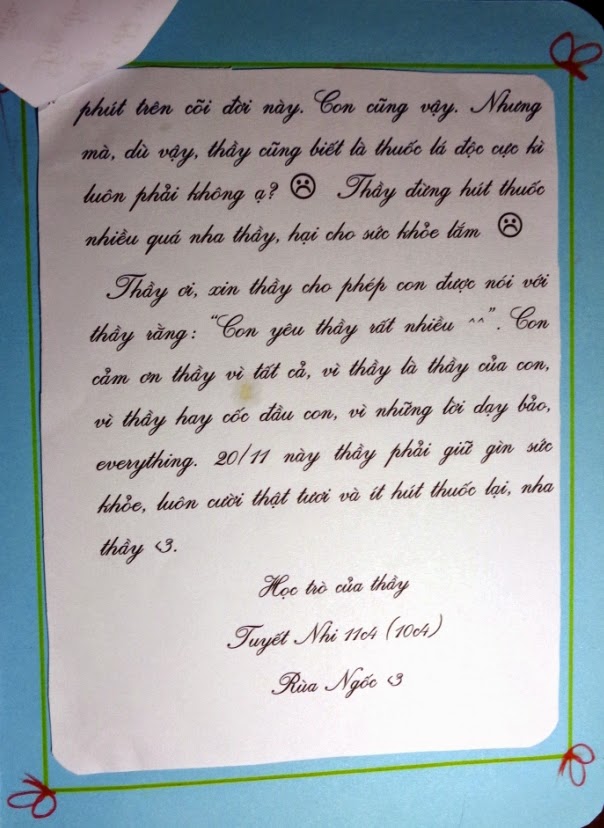 phút trên cõi đời này. Con cũng vậy. Nhưng
mà, dù vậy, thầy cũng biết là thuốc lá độc cực kì
luôn phải không ạ? ☹ Thầy đừng hút thuốc
nhiều quá nha thầy, hại cho sức khỏe lắm ☹
Thầy ơi, xin thầy cho phép con được nói với
thầy rằng: “Con yêu thầy rất nhiều ^^”. Con
cảm ơn thầy vì tất cả, vì thầy là thầy của con,
vì thầy hay cốc đầu con, vì những lời dạy bảo,
everything. 20/11 này thầy phải giữ gìn sức
khỏe, luôn cười thật tươi và ít hút thuốc lại, nha
thầy <3.
Học trò của thầy
Tuyết Nhi 11c4 (10c4)
Rùa Ngốc <3